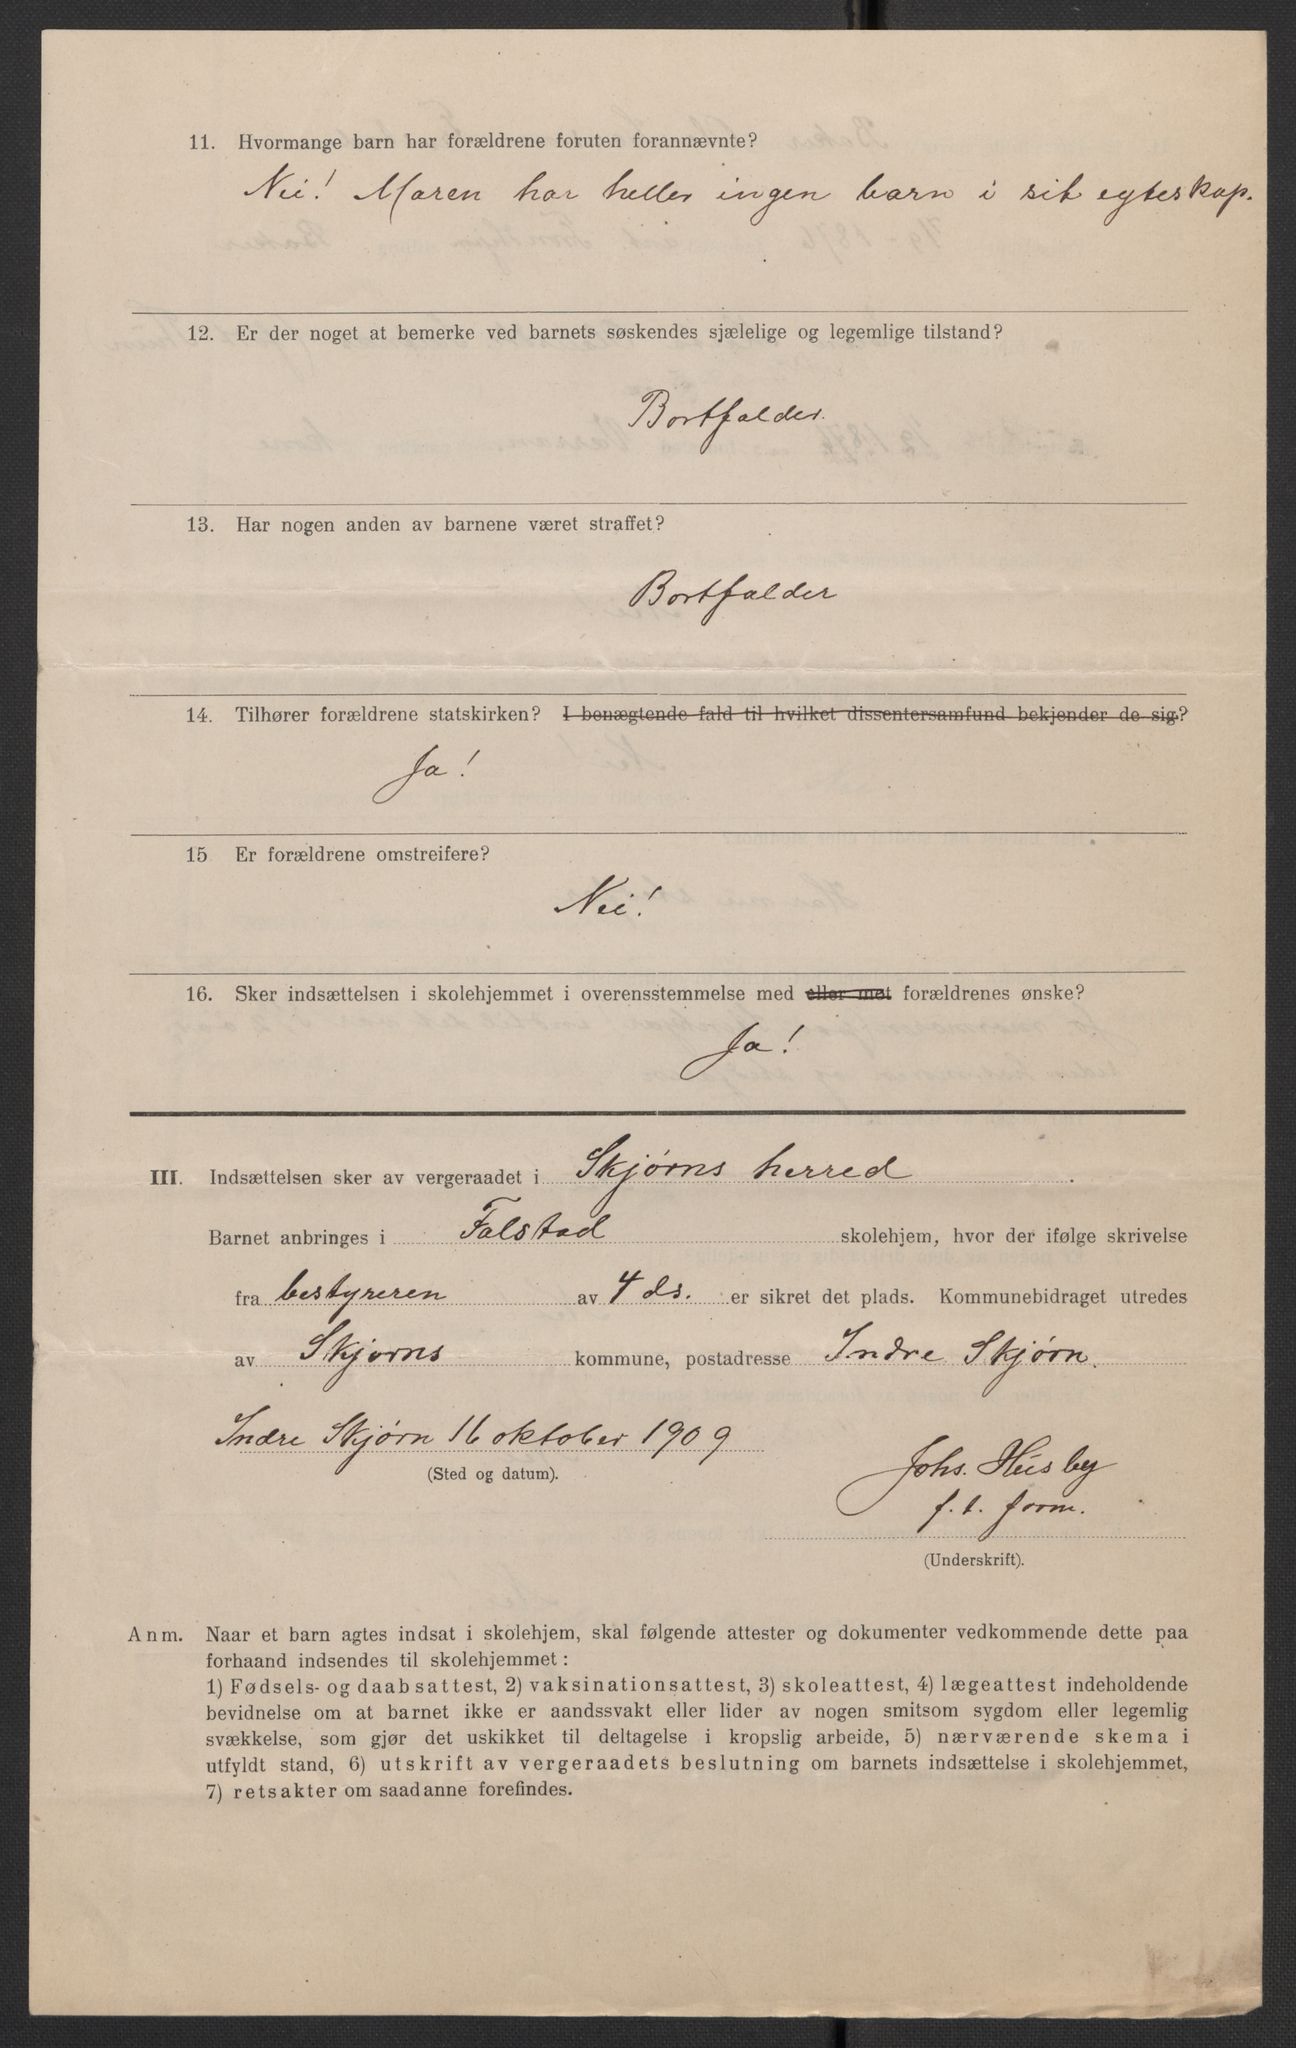 11. Hvormange barn har forældrene foruten forannævnte?
Nei! Maren har heller ingen barn i sit egteskap.
12. Er der noget at bemerke ved barnets søskendes sjælelige og legemlige tilstand?
Bortfalder.
13. Har nogen anden av barnene været straffet?
Bortfalder
14. Tilhører forældrene statskirken? I benægtende fald til hvilket dissentersamfund bekjender de sig?
Ja!
15 Er forældrene omstreifere?
Nei!
16. Sker indsættelsen i skolehjemmet i overensstemmelse med eller mot forældrenes ønske?
Ja!
III. Indsættelsen sker av vergeraadet i Skjørns herred
Barnet anbringes i Falstad skolehjem, hvor der ifølge skrivelse
fra bestyreren av 4 ds. er sikret det plads. Kommunebidraget utredes
av Skjørns kommune, postadresse Indre Skjørn.
Indre Skjørn 16 oktober 1909
(Sted og datum).
Johs. Husby
f. t. form.
(Underskrift).
Anm. Naar et barn agtes indsat i skolehjem, skal følgende attester og dokumenter vedkommende dette paa
forhaand indsendes til skolehjemmet:
1) Fødsels- og daabsattest, 2) vaksinationsattest, 3) skoleattest, 4) lægeattest indeholdende
bevidnelse om at barnet ikke er aandssvakt eller lider av nogen smitsom sygdom eller legemlig
svækkelse, som gjør det uskikket til deltagelse i kropslig arbeide, 5) nærværende skema i
utfyldt stand, 6) utskrift av vergeraadets beslutning om barnets indsættelse i skolehjemmet,
7) retsakter om saadanne forefindes.